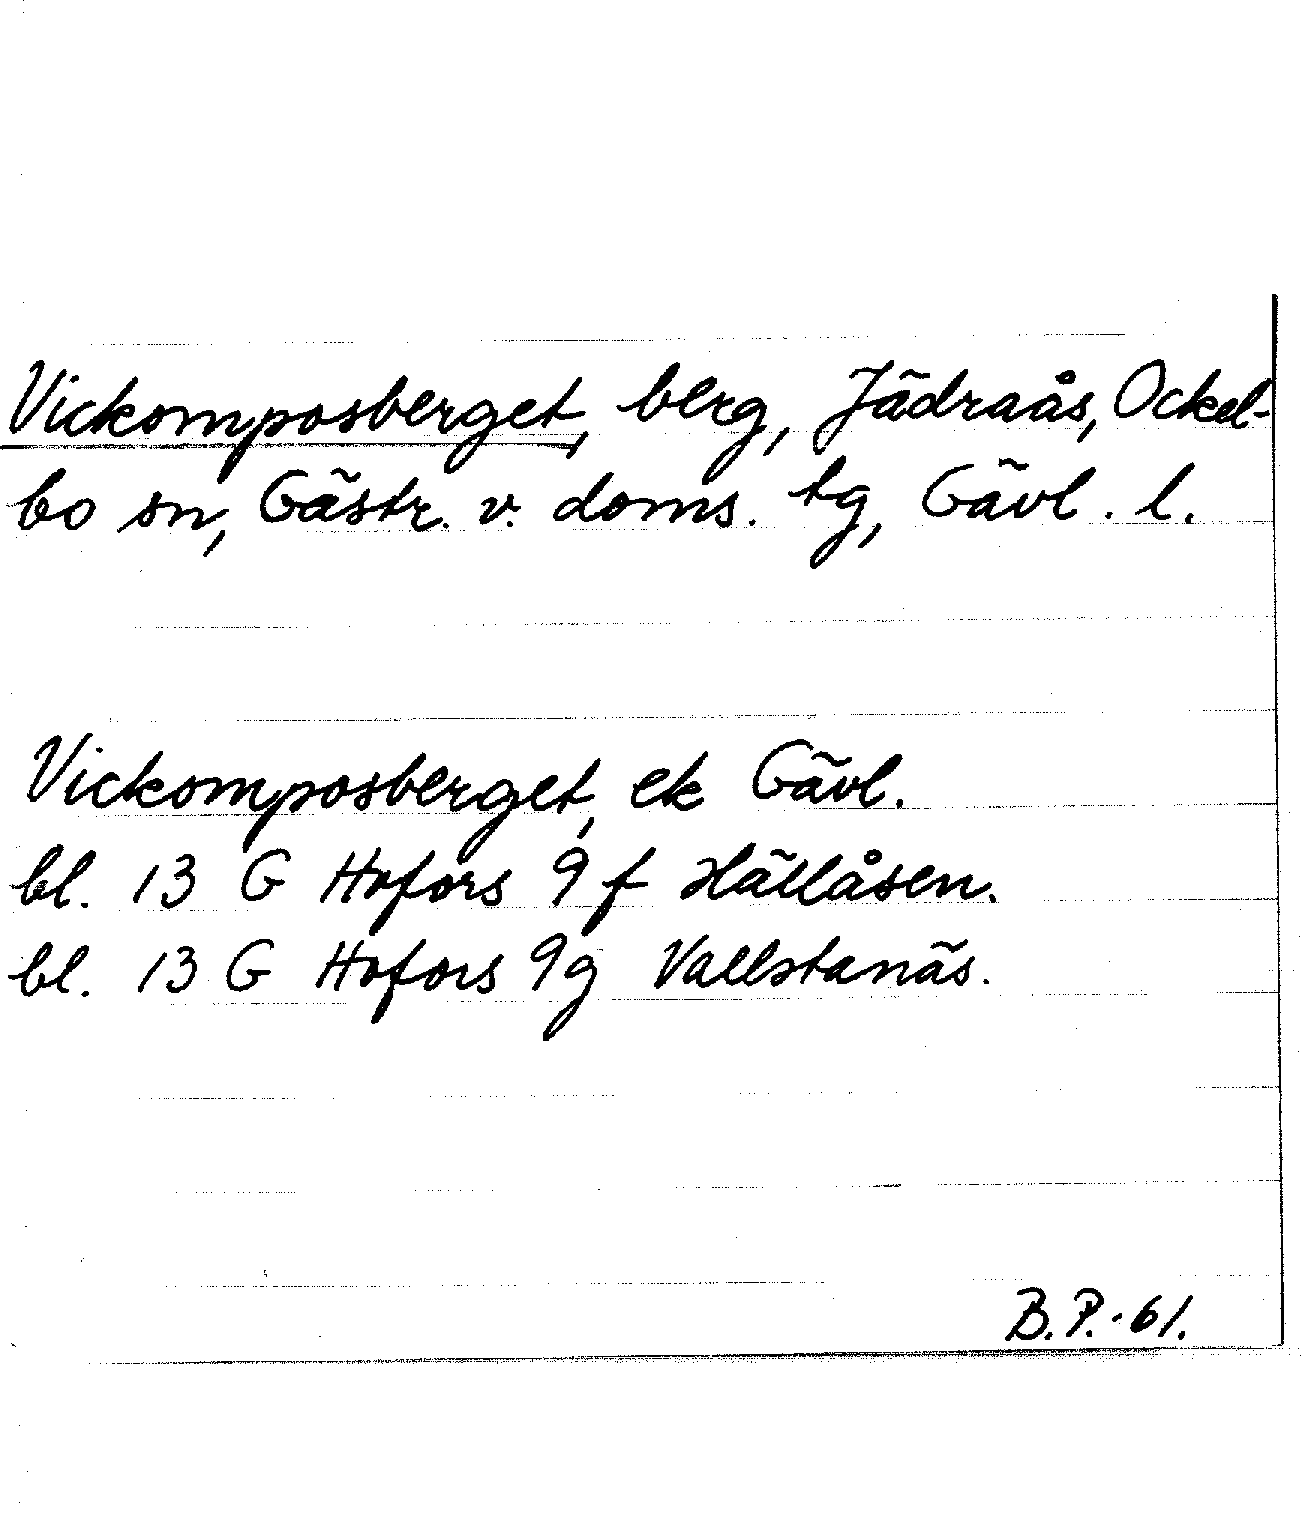 Vickomposberget, berg, Jädraås, Ockel-
bo sn, Gästr. v. doms. tg, Gävl. l.
Vickomposberget, ek Gävl.
bl. 13 G Hofors 9 f Hällåsen.
bl. 13 G Hofors 9g Vallstanäs.
B.P.-61.